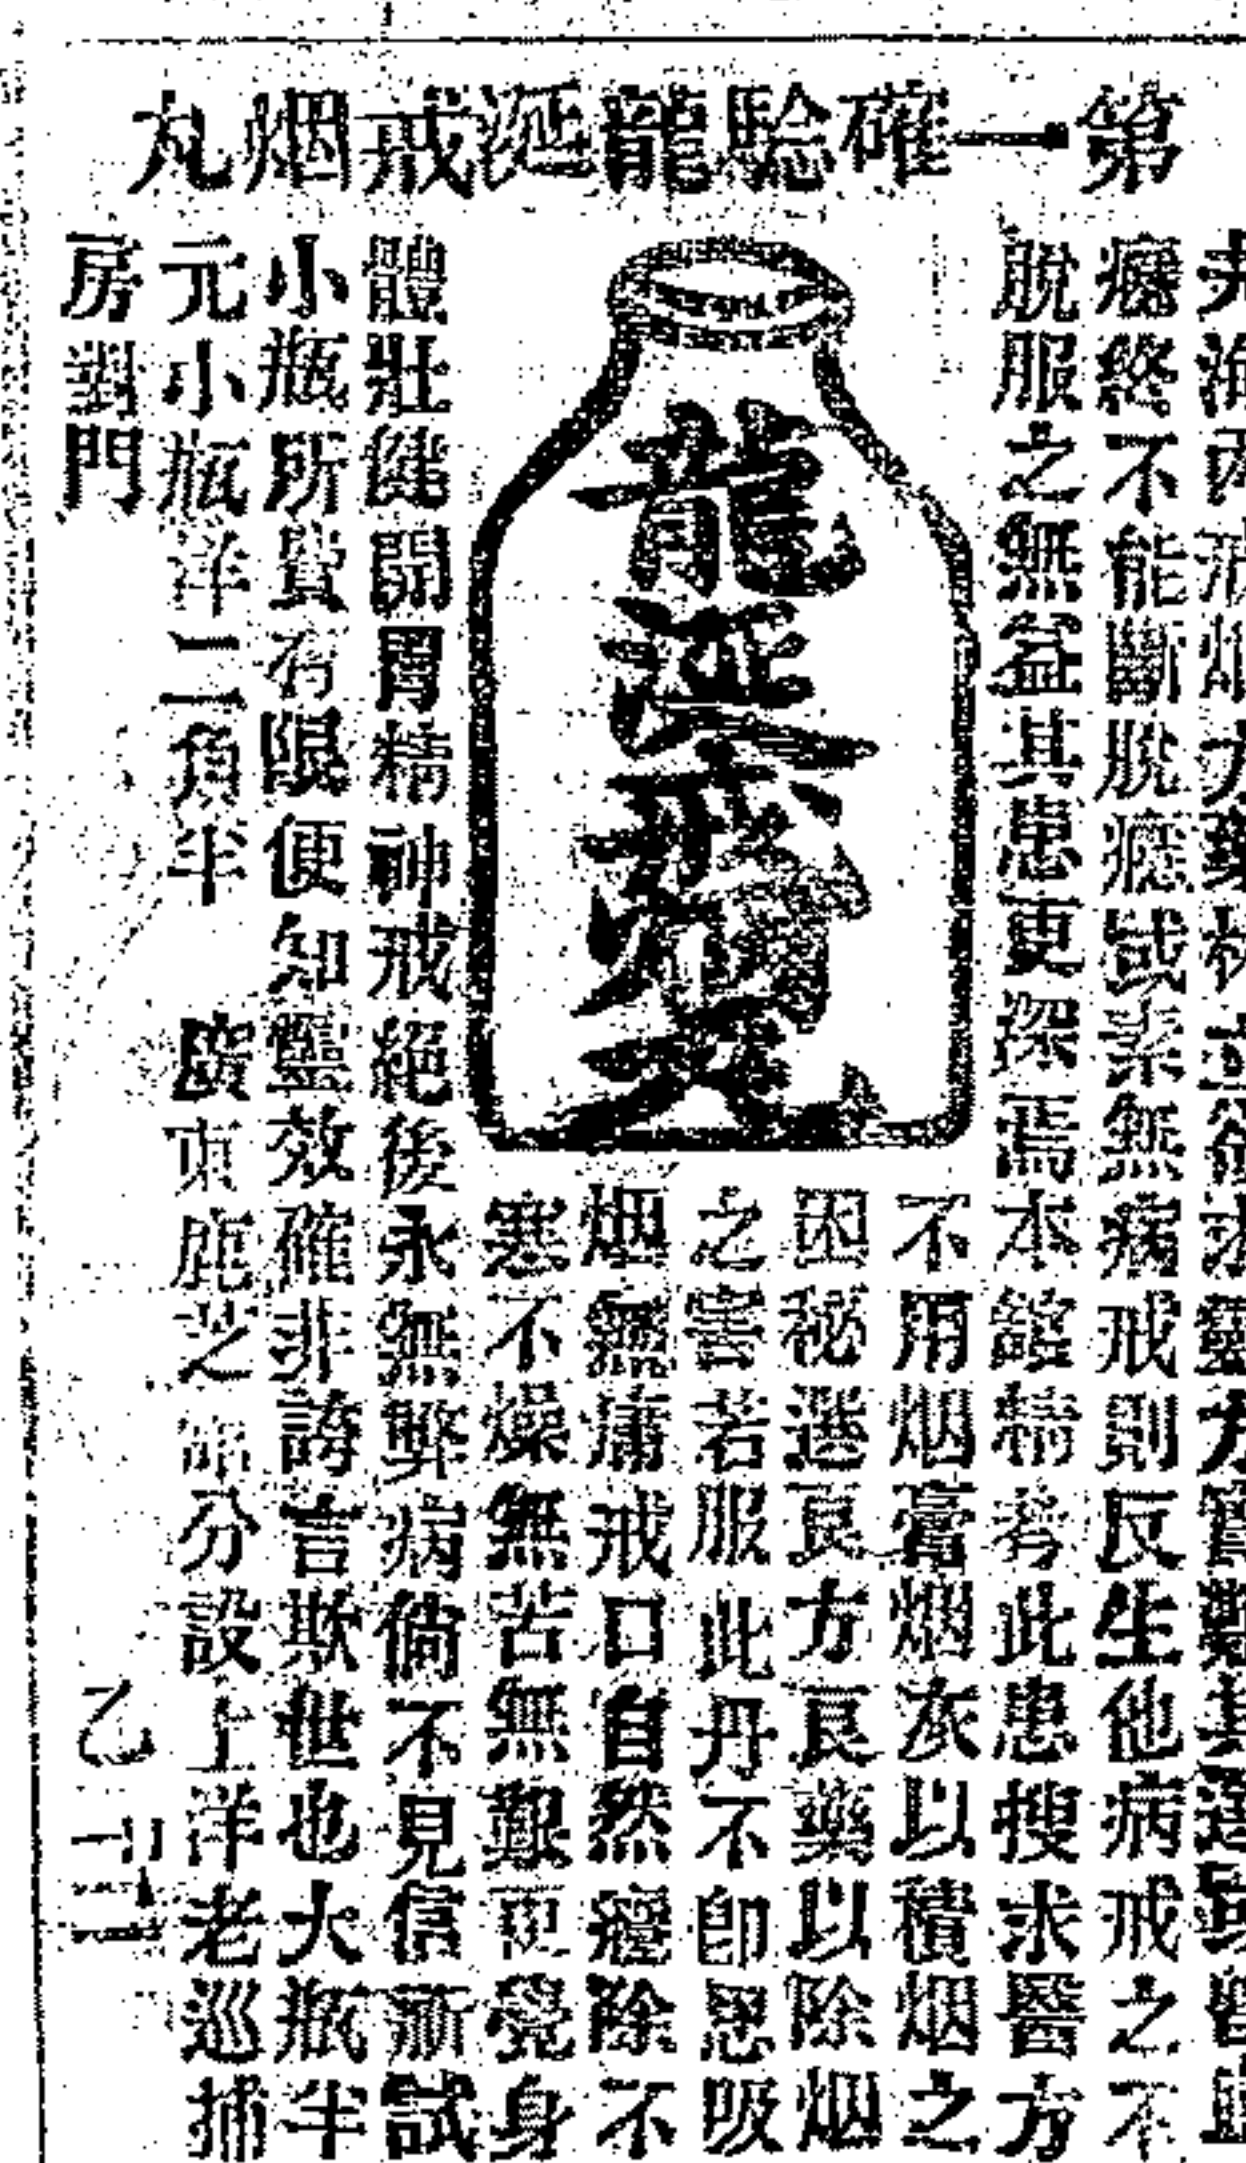 第一確騐龍涎戒烟丸
癮終不能斷脫癮或素無病戒則反生他病戒之不
脫服之無益其患更深焉本舘精考此患搜求醫方
不用烟膏烟灰以積烟之
因秘選良方良藥以除烟
之害若服此丹不卽思吸
烟無庸戒口自然癮除不
寒不燥無苦無艱更覺身
龍涎戒烟丸
體壯健開胃精神戒絕後永無弊病倘不見信祈試
小瓶所費有限便知靈效確非誇言欺世也大瓶半
元小瓶洋二角半 廣東鹿芝 分設上洋老巡捕
房對門